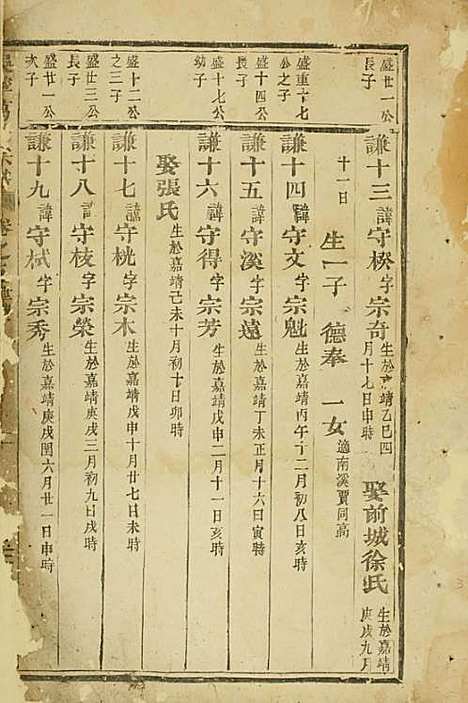 盛廿一公長子
謙十三諱守楑字宗奇生於嘉靖乙巳四月十七日申時 娶前城徐氏生於嘉靖庚戌九月
十一日 生一子 德奉 一女適南溪賈同高
盛重十七公之子
謙十四諱守文字宗魁生於嘉靖丙午十二月初八日亥時
盛十四公長子
謙十五諱守溪字宗遠生於嘉靖丁未正月十六日寅時
盛十七公幼子
謙十六諱守得字宗芳生於嘉靖戊申二月十一日亥時
娶張氏生於嘉靖己未十月初十日卯時
盛十二公之三子
謙十七諱守桃字宗木生於嘉靖戊申十月廿七日未時
盛廿三公長子
謙十八諱守枝字宗榮生於嘉靖庚戌三月初九日戌時
盛廿一公次子
謙十九諱守栻字宗秀生於嘉靖庚戌閏六月廿一日申時